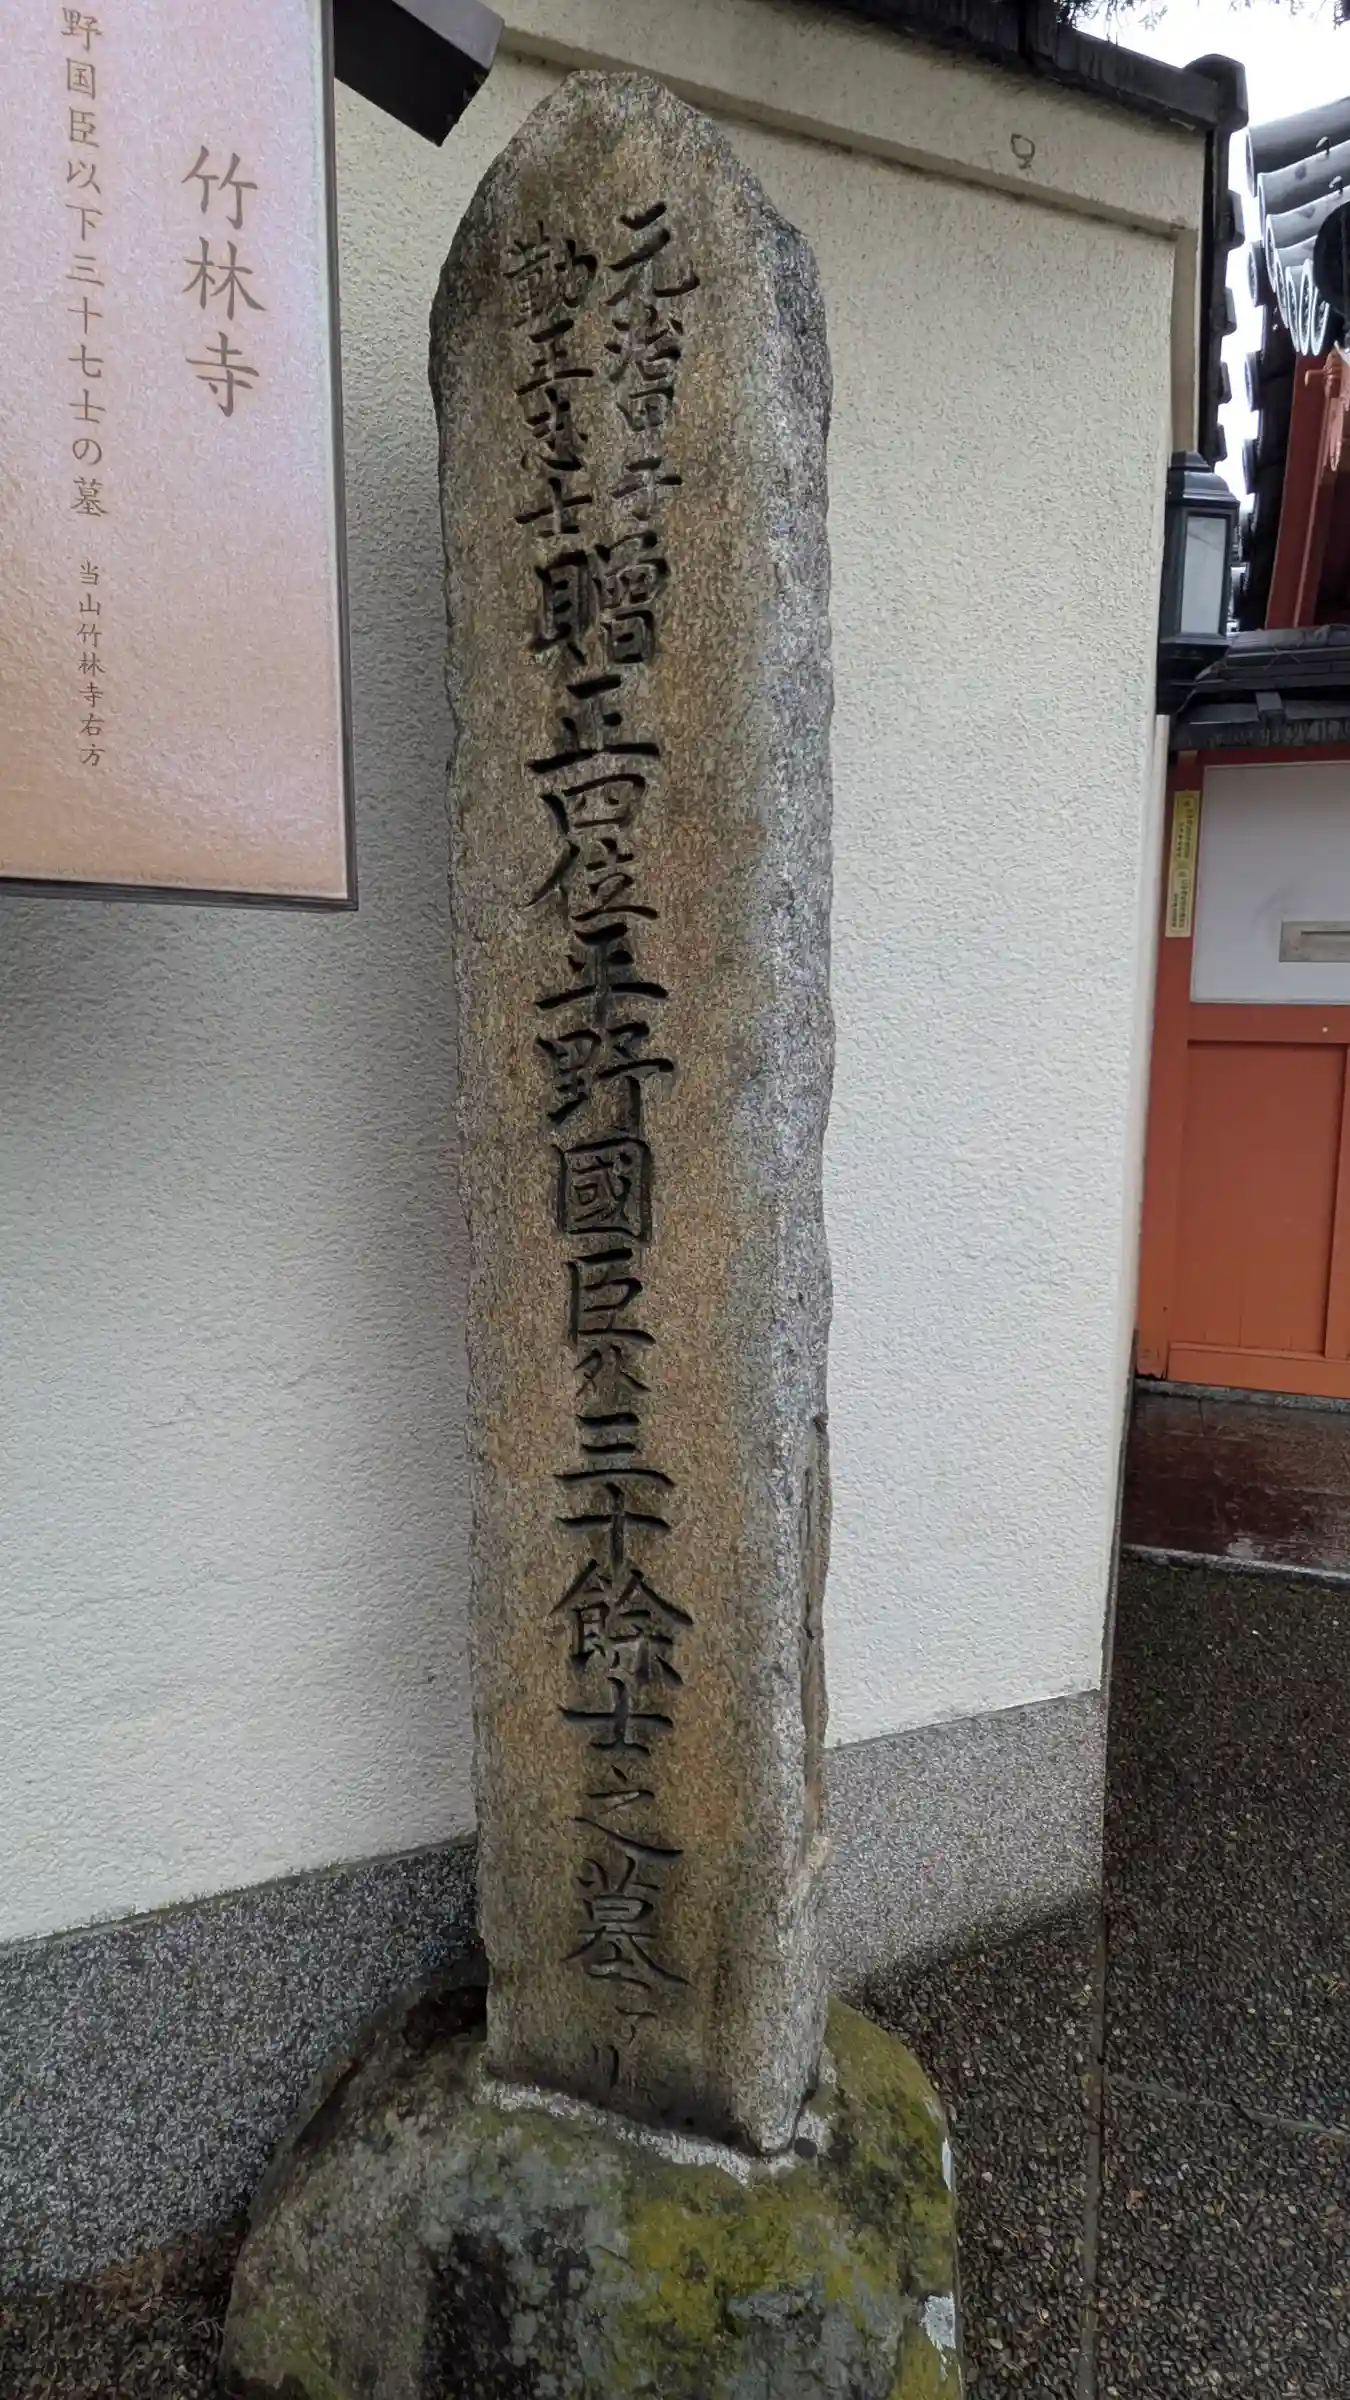 竹林寺
野国臣以下三十七士の墓 当山竹林寺右方
元治甲子
勤王志士
贈正四位平野國臣外三十餘士之墓アリ